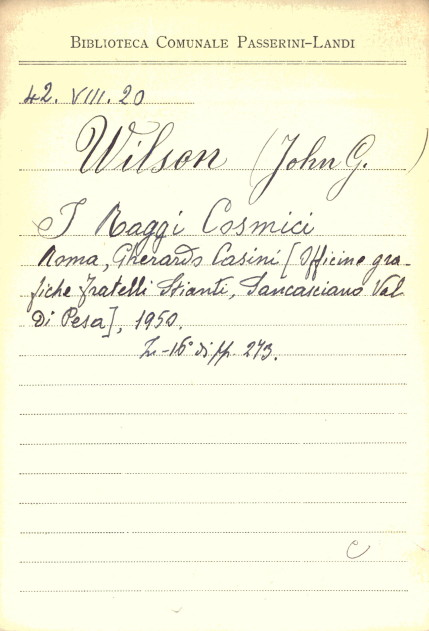 BIBLIOTECA COMUNALE PASSERINI-LANDI
42. VIII. 20
Wilson (John G. )
I Raggi Cosmici
Roma, Gherardo Casini [Officine gra-
fiche fratelli Stianti, Sancasciano Val
di Pesa], 1950.
In-16° di pp. 273.
C